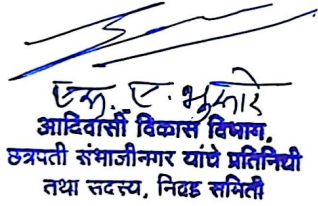 एस. ए. भुमरे
आदिवासी विकास विभाग,
छत्रपती संभाजीनगर यांचे प्रतिनिधी
तथा सदस्य, निवड समिती